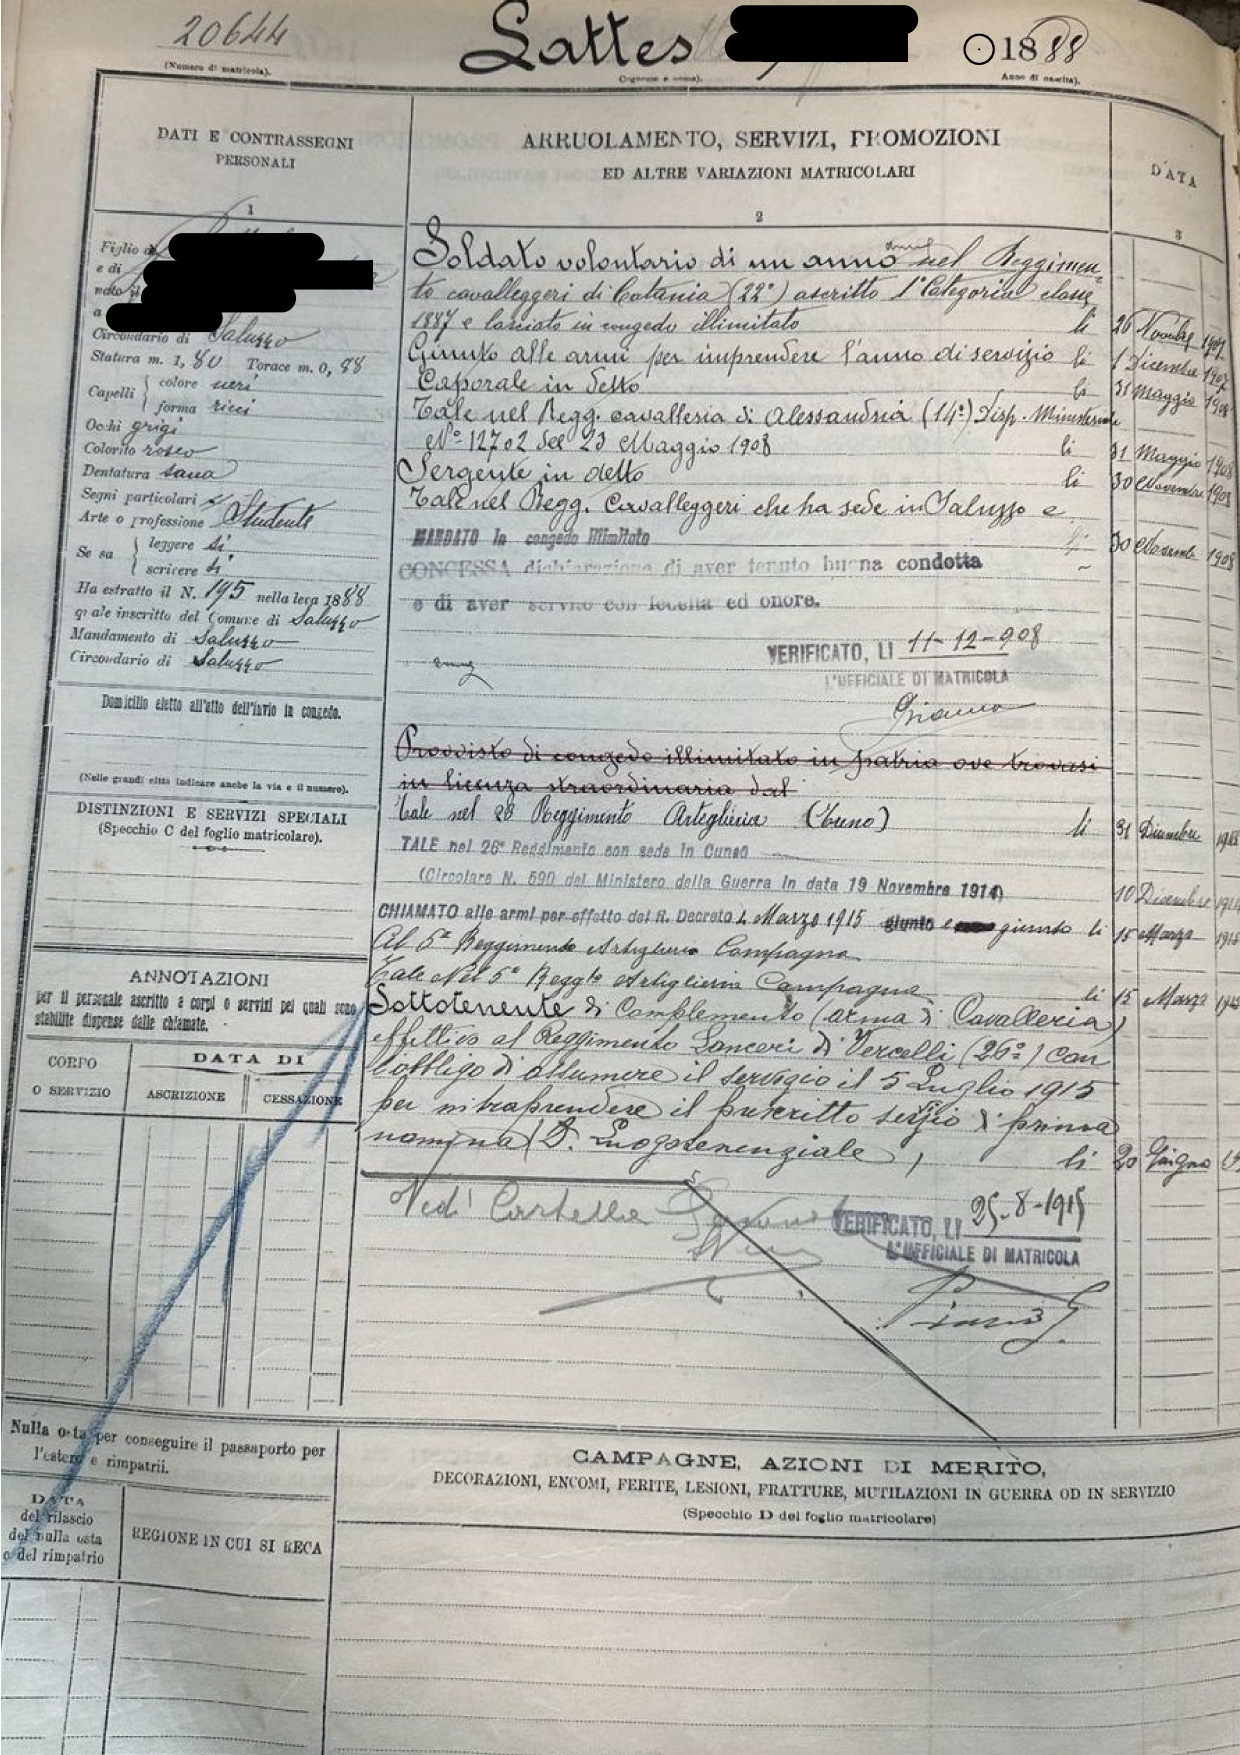 20644
(Numero di matricola).
Lattes
(Cognome e nome).
1888
Anno di nascita).
DATI E CONTRASSEGNI
PERSONALI
1
Figlio di
e di
nato il
a
Circondario di Saluzzo
Statura m. 1,80 Torace m. 0,88
Capelli
colore neri
forma ricci
Occhi grigi
Colorito roseo
Dentatura sana
Segni particolari
Arte o professione Studente
Se sa
leggere si
scrivere si
Ha estratto il N. 195 nella leva 1888
quale inscritto del Comune di Saluzzo
Mandamento di Saluzzo
Circondario di Saluzzo
Domicilio eletto all'atto dell'invio in congedo.
(Nelle grandi città indicare anche la via e il numero).
DISTINZIONI E SERVIZI SPECIALI
(Specchio C del foglio matricolare).
ANNOTAZIONI
per il personale ascritto a corpi o servizi pei quali sono
stabilite dispense dalle chiamate.
CORPO
O SERVIZIO
DATA DI
ASCRIZIONE
CESSAZIONE
Nulla osta per conseguire il passaporto per
l'estero e rimpatrii.
DATA
del rilascio
del nulla osta
o del rimpatrio
REGIONE IN CUI SI RECA
ARRUOLAMENTO, SERVIZI, PROMOZIONI
ED ALTRE VARIAZIONI MATRICOLARI
2
DATA
3
Soldato volontario di un anno nel Reggimen-
to cavalleggeri di Catania (22°) ascritto 1ª Categoria classe
1887 e lasciato in congedo illimitato li 26 Novbre 1907
Giunto alle armi per imprendere l'anno di servizio li 1 Dicembre 1907
Caporale in detto li 31 Maggio 1908
Tale nel Regg. cavalleria di Alessandria (14°) Disp. Ministeriale
N° 12702 del 23 Maggio 1908 li 31 Maggio 1908
Sergente in detto li 30 Novembre 1908
Tale nel Regg. Cavalleggeri che ha sede in Saluzzo e
MANDATO in congedo illimitato li 30 Novembre 1908
CONCESSA dichiarazione di aver tenuto buona condotta
e di aver servito con fedeltà ed onore.
VERIFICATO, LI 11-12-908
L'UFFICIALE DI MATRICOLA
Provvisto di congedo illimitato in patria ove trovasi
in licenza straordinaria dal
Tale nel 26 Reggimento Artiglieria (Cuneo) li 31 Dicembre
TALE nel 26° Reggimento con sede in Cuneo
(Circolare N. 690 del Ministero della Guerra in data 19 Novembre 1914) 10 Dicembre 1914
CHIAMATO alle armi per effetto del R. Decreto 4 Marzo 1915 giunto e giunto li 15 Marzo 1915
Al 5° Reggimento Artiglieria Campagna
Tale Nel 5° Reggto Artiglieria Campagna li 15 Marzo 1915
Sottotenente di Complemento (arma di Cavalleria)
effettivo al Reggimento Lancieri di Vercelli (26°) con
l'obbligo di assumere il servizio il 5 Luglio 1915
per intraprendere il prescritto servizio di prima
nomina D. Luogotenenziale, li 20 Giugno 15
Vedi Cartella
VERIFICATO, LI 25-8-1915
L'UFFICIALE DI MATRICOLA
CAMPAGNE, AZIONI DI MERITO,
DECORAZIONI, ENCOMI, FERITE, LESIONI, FRATTURE, MUTILAZIONI IN GUERRA OD IN SERVIZIO
(Specchio D del foglio matricolare)